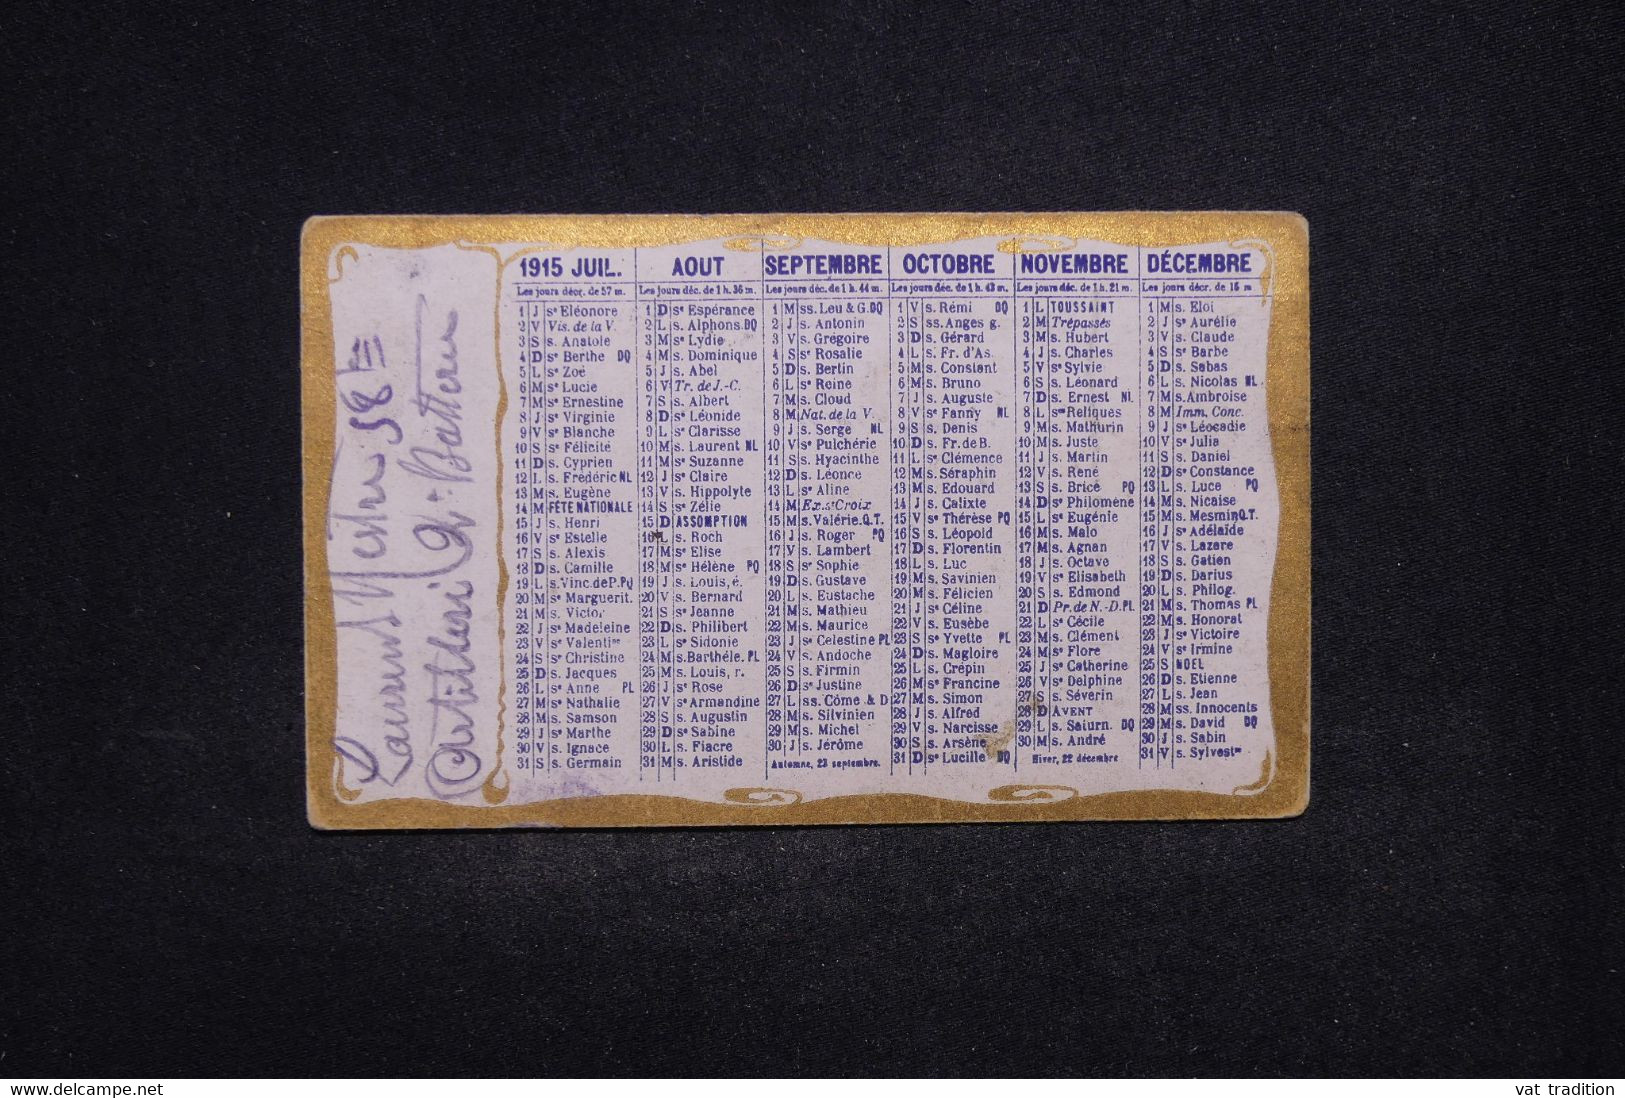 1915 JUIL.
Les jours décr. de 57 m.
1 J sᵉ Eléonore
2 V Vis. de la V.
3 S s. Anatole
4 D sᵉ Berthe DQ
5 L sᵉ Zoé
6 M sᵉ Lucie
7 M sᵉ Ernestine
8 J sᵉ Virginie
9 V sᵉ Blanche
10 S sᵉ Félicité
11 D s. Cyprien
12 L s. Frédéric NL
13 M s. Eugène
14 M FÊTE NATIONALE
15 J s. Henri
16 V sᵉ Estelle
17 S s. Alexis
18 D s. Camille
19 L s. Vinc. de P. PQ
20 M sᵉ Marguerit.
21 M s. Victor
22 J sᵉ Madeleine
23 V sᵉ Valentine
24 S sᵉ Christine
25 D s. Jacques
26 L sᵉ Anne PL
27 M sᵉ Nathalie
28 M s. Samson
29 J sᵉ Marthe
30 V s. Ignace
31 S s. Germain
AOUT
Les jours déc. de 1 h. 36 m.
1 D sᵉ Espérance
2 L s. Alphons. DQ
3 M sᵉ Lydie
4 M s. Dominique
5 J s. Abel
6 V Tr. de J.-C.
7 S s. Albert
8 D sᵉ Léonide
9 L sᵉ Clarisse
10 M s. Laurent NL
11 M sᵉ Suzanne
12 J sᵉ Claire
13 V s. Hippolyte
14 S sᵉ Zélie
15 D ASSOMPTION
16 L s. Roch
17 M sᵉ Elise
18 M sᵉ Hélène PQ
19 J s. Louis, é.
20 V s. Bernard
21 S sᵉ Jeanne
22 D s. Philibert
23 L sᵉ Sidonie
24 M s. Barthéle. PL
25 M s. Louis, r.
26 J sᵉ Rose
27 V sᵉ Armandine
28 S s. Augustin
29 D sᵉ Sabine
30 L s. Fiacre
31 M s. Aristide
SEPTEMBRE
Les jours déc. de 1 h. 44 m.
1 M ss. Leu & G. DQ
2 J s. Antonin
3 V s. Grégoire
4 S sᵉ Rosalie
5 D s. Bertin
6 L sᵉ Reine
7 M s. Cloud
8 M Nat. de la V.
9 J s. Serge NL
10 V sᵉ Pulchérie
11 S s. Hyacinthe
12 D s. Léonce
13 L sᵉ Aline
14 M Ex. sᵉ Croix
15 M s. Valérie. Q.T.
16 J s. Roger PQ
17 V s. Lambert
18 S sᵉ Sophie
19 D s. Gustave
20 L s. Eustache
21 M s. Mathieu
22 M s. Maurice
23 J sᵉ Celestine PL
24 V s. Andoche
25 S s. Firmin
26 D sᵉ Justine
27 L ss. Côme & D
28 M s. Silvinien
29 M s. Michel
30 J s. Jérôme
Automne, 23 septembre.
OCTOBRE
Les jours déc. de 1 h. 43 m.
1 V s. Rémi DQ
2 S ss. Anges g.
3 D s. Gérard
4 L s. Fr. d'As.
5 M s. Constant
6 M s. Bruno
7 J s. Auguste
8 V sᵉ Fanny NL
9 S s. Denis
10 D s. Fr. de B.
11 L sᵉ Clémence
12 M s. Séraphin
13 M s. Edouard
14 J s. Calixte
15 V sᵉ Thérèse PQ
16 S s. Léopold
17 D s. Florentin
18 L s. Luc
19 M s. Savinien
20 M s. Félicien
21 J sᵉ Céline
22 V s. Eusèbe
23 S sᵉ Yvette PL
24 D s. Magloire
25 L s. Crépin
26 M sᵉ Francine
27 M s. Simon
28 J s. Alfred
29 V s. Narcisse
30 S s. Arsène
31 D sᵉ Lucille DQ
NOVEMBRE
Les jours déc. de 1 h. 21 m.
1 L TOUSSAINT
2 M Trépassés
3 M s. Hubert
4 J s. Charles
5 V sᵉ Sylvie
6 S s. Léonard
7 D s. Ernest NL
8 L sᵉˢ Reliques
9 M s. Mathurin
10 M s. Juste
11 J s. Martin
12 V s. René
13 S s. Brice PQ
14 D sᵉ Philomène
15 L sᵉ Eugénie
16 M s. Malo
17 M s. Agnan
18 J s. Octave
19 V sᵉ Elisabeth
20 S s. Edmond
21 D Pr. de N.-D. PL
22 L sᵉ Cécile
23 M s. Clément
24 M sᵉ Flore
25 J sᵉ Catherine
26 V sᵉ Delphine
27 S s. Séverin
28 D AVENT
29 L s. Saturn. DQ
30 M s. André
Hiver, 22 décembre
DÉCEMBRE
Les jours décr. de 15 m
1 M s. Eloi
2 J sᵉ Aurélie
3 V s. Claude
4 S sᵉ Barbe
5 D s. Sabas
6 L s. Nicolas NL
7 M s. Ambroise
8 M Imm. Conc.
9 J sᵉ Léocadie
10 V sᵉ Julia
11 S s. Daniel
12 D sᵉ Constance
13 L s. Luce PQ
14 M s. Nicaise
15 M s. Mesmin Q.T.
16 J sᵉ Adélaide
17 V s. Lazare
18 S s. Gatien
19 D s. Darius
20 L s. Philog.
21 M s. Thomas PL
22 M s. Honorat
23 J sᵉ Victoire
24 V sᵉ Irmine
25 S NOEL
26 D s. Etienne
27 L s. Jean
28 M ss. Innocents
29 M s. David DQ
30 J s. Sabin
31 V s. Sylvestʳᵉ
https://www.delcampe.net
vat tradition